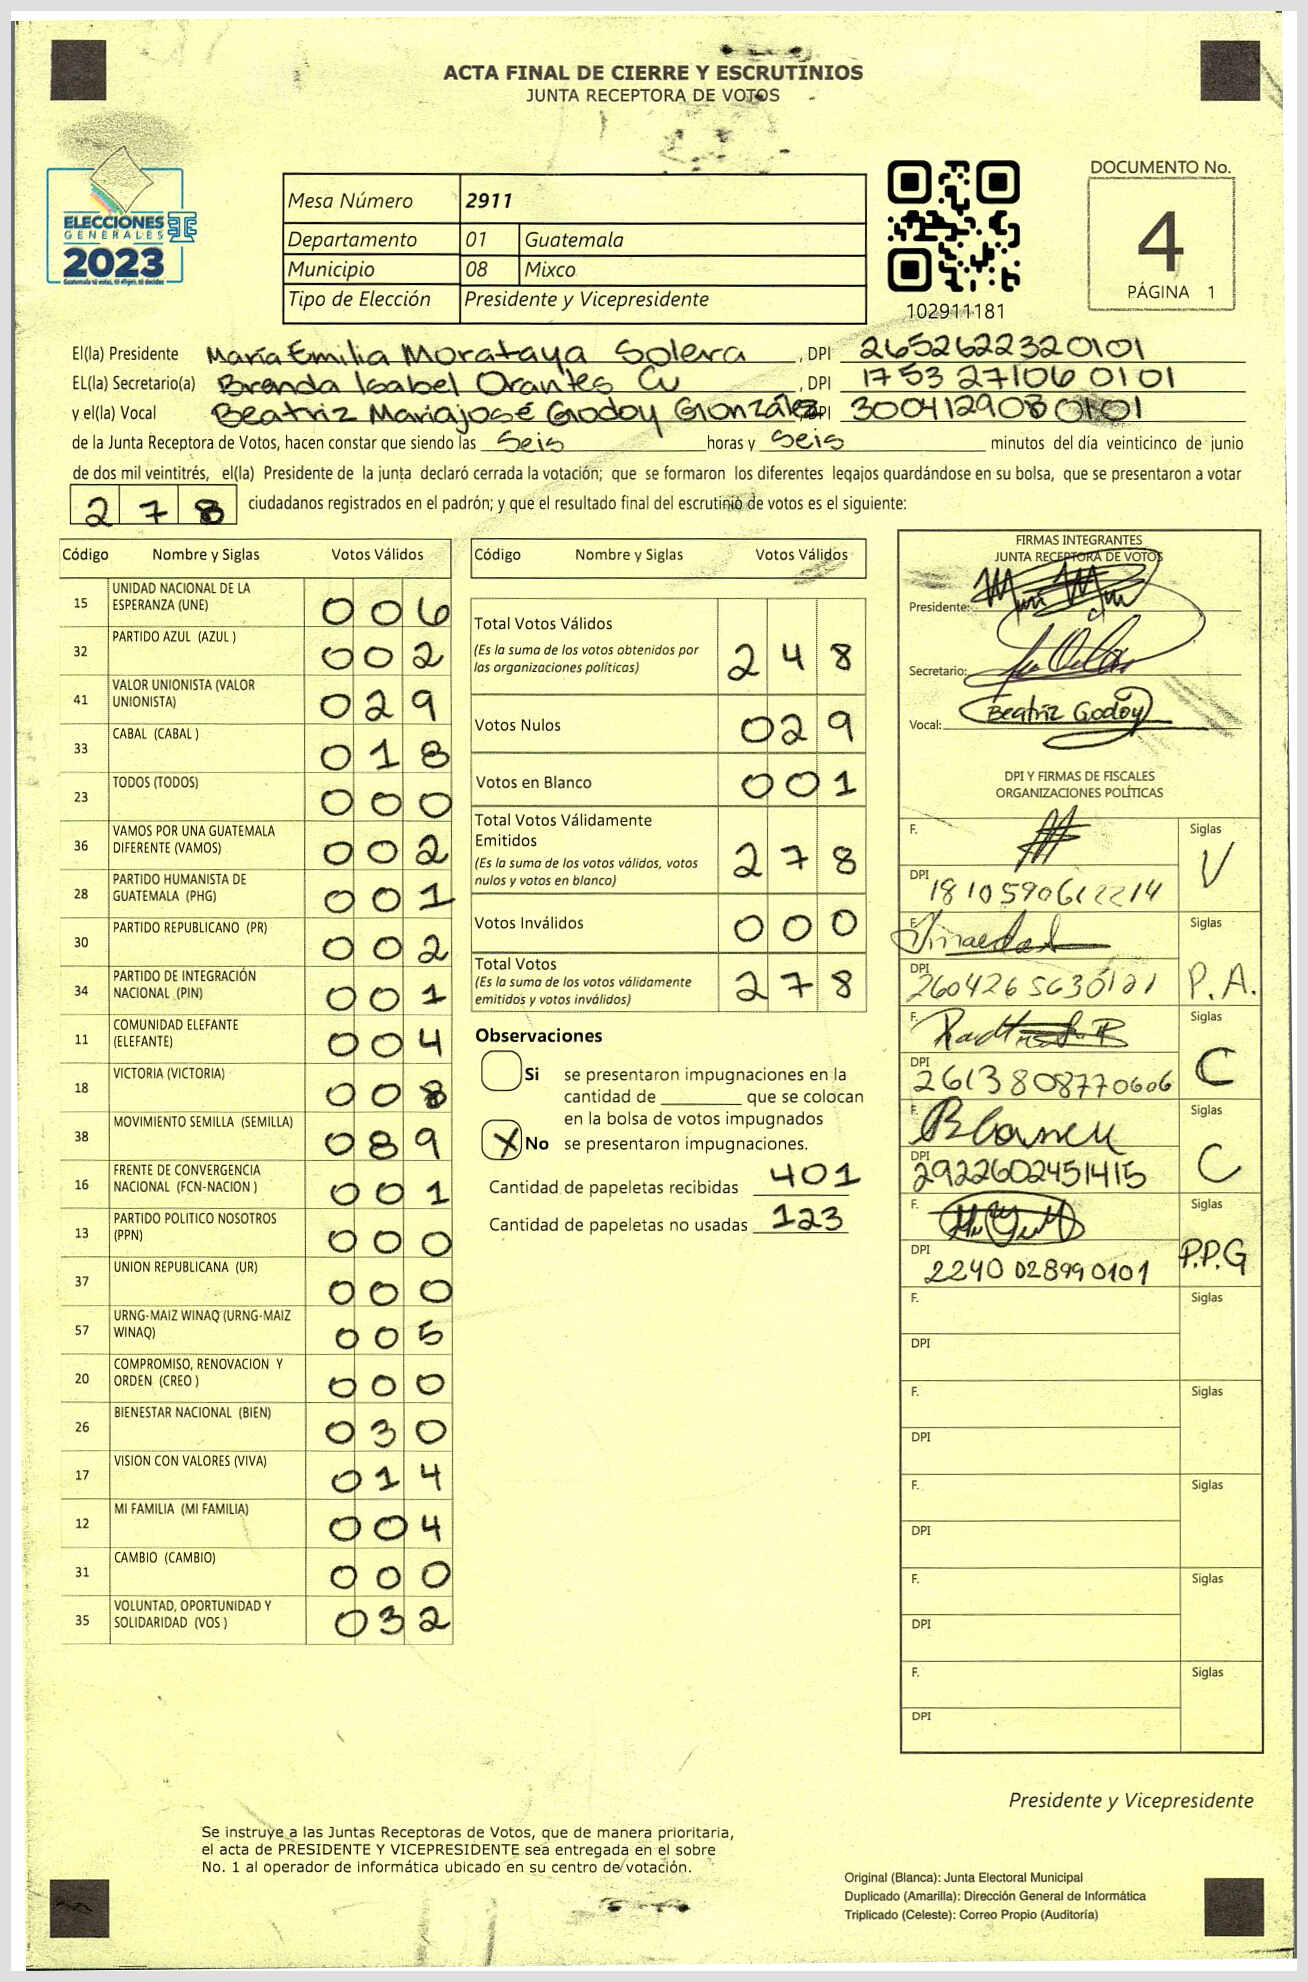 ACTA FINAL DE CIERRE Y ESCRUTINIOS
JUNTA RECEPTORA DE VOTOS
ELECCIONES
GENERALES
2023
Guatemala tú votas, tú eliges, tú decides
Mesa Número 2911
Departamento 01 Guatemala
Municipio 08 Mixco
Tipo de Elección Presidente y Vicepresidente
102911181
DOCUMENTO No.
4
PÁGINA 1
El(la) Presidente María Emilia Morataya Solera, DPI 2652622320101
EL(la) Secretario(a) Brenda Isabel Orantes Cu, DPI 1753 27106 0101
y el(la) Vocal Beatriz Mariajosé Godoy González, DPI 3004129080101
de la Junta Receptora de Votos, hacen constar que siendo las seis horas y seis minutos del día veinticinco de junio
de dos mil veintitrés, el(la) Presidente de la junta declaró cerrada la votación; que se formaron los diferentes legajos quardándose en su bolsa, que se presentaron a votar
278 ciudadanos registrados en el padrón; y que el resultado final del escrutinio de votos es el siguiente:
Código Nombre y Siglas Votos Válidos
15 UNIDAD NACIONAL DE LA ESPERANZA (UNE) 006
32 PARTIDO AZUL (AZUL ) 002
41 VALOR UNIONISTA (VALOR UNIONISTA) 029
33 CABAL (CABAL ) 018
23 TODOS (TODOS) 000
36 VAMOS POR UNA GUATEMALA DIFERENTE (VAMOS) 002
28 PARTIDO HUMANISTA DE GUATEMALA (PHG) 001
30 PARTIDO REPUBLICANO (PR) 002
34 PARTIDO DE INTEGRACIÓN NACIONAL (PIN) 001
11 COMUNIDAD ELEFANTE (ELEFANTE) 004
18 VICTORIA (VICTORIA) 008
38 MOVIMIENTO SEMILLA (SEMILLA) 089
16 FRENTE DE CONVERGENCIA NACIONAL (FCN-NACION ) 001
13 PARTIDO POLITICO NOSOTROS (PPN) 000
37 UNION REPUBLICANA (UR) 000
57 URNG-MAIZ WINAQ (URNG-MAIZ WINAQ) 005
20 COMPROMISO, RENOVACION Y ORDEN (CREO ) 000
26 BIENESTAR NACIONAL (BIEN) 030
17 VISION CON VALORES (VIVA) 014
12 MI FAMILIA (MI FAMILIA) 004
31 CAMBIO (CAMBIO) 000
35 VOLUNTAD, OPORTUNIDAD Y SOLIDARIDAD (VOS ) 032
Código Nombre y Siglas Votos Válidos
Total Votos Válidos 248
(Es la suma de los votos obtenidos por
las organizaciones políticas)
Votos Nulos 029
Votos en Blanco 001
Total Votos Válidamente
Emitidos 278
(Es la suma de los votos válidos, votos
nulos y votos en blanco)
Votos Inválidos 000
Total Votos 278
(Es la suma de los votos válidamente
emitidos y votos inválidos)
Observaciones
Si se presentaron impugnaciones en la
cantidad de ________ que se colocan
en la bolsa de votos impugnados
X No se presentaron impugnaciones.
Cantidad de papeletas recibidas 401
Cantidad de papeletas no usadas 123
FIRMAS INTEGRANTES
JUNTA RECEPTORA DE VOTOS
Presidente:
Secretario:
Vocal: Beatriz Godoy
DPI Y FIRMAS DE FISCALES
ORGANIZACIONES POLÍTICAS
F. Siglas V
DPI 1810590612214
F. Siglas P.A.
DPI 2604265630121
F. Siglas C
DPI 2613808770606
F. Siglas C
DPI 2922602451415
F. Siglas P.P.G
DPI 2240 02899 0101
F. Siglas
DPI
F. Siglas
DPI
F. Siglas
DPI
F. Siglas
DPI
F. Siglas
DPI
Presidente y Vicepresidente
Se instruye a las Juntas Receptoras de Votos, que de manera prioritaria,
el acta de PRESIDENTE Y VICEPRESIDENTE sea entregada en el sobre
No. 1 al operador de informática ubicado en su centro de votación.
Original (Blanca): Junta Electoral Municipal
Duplicado (Amarilla): Dirección General de Informática
Triplicado (Celeste): Correo Propio (Auditoría)